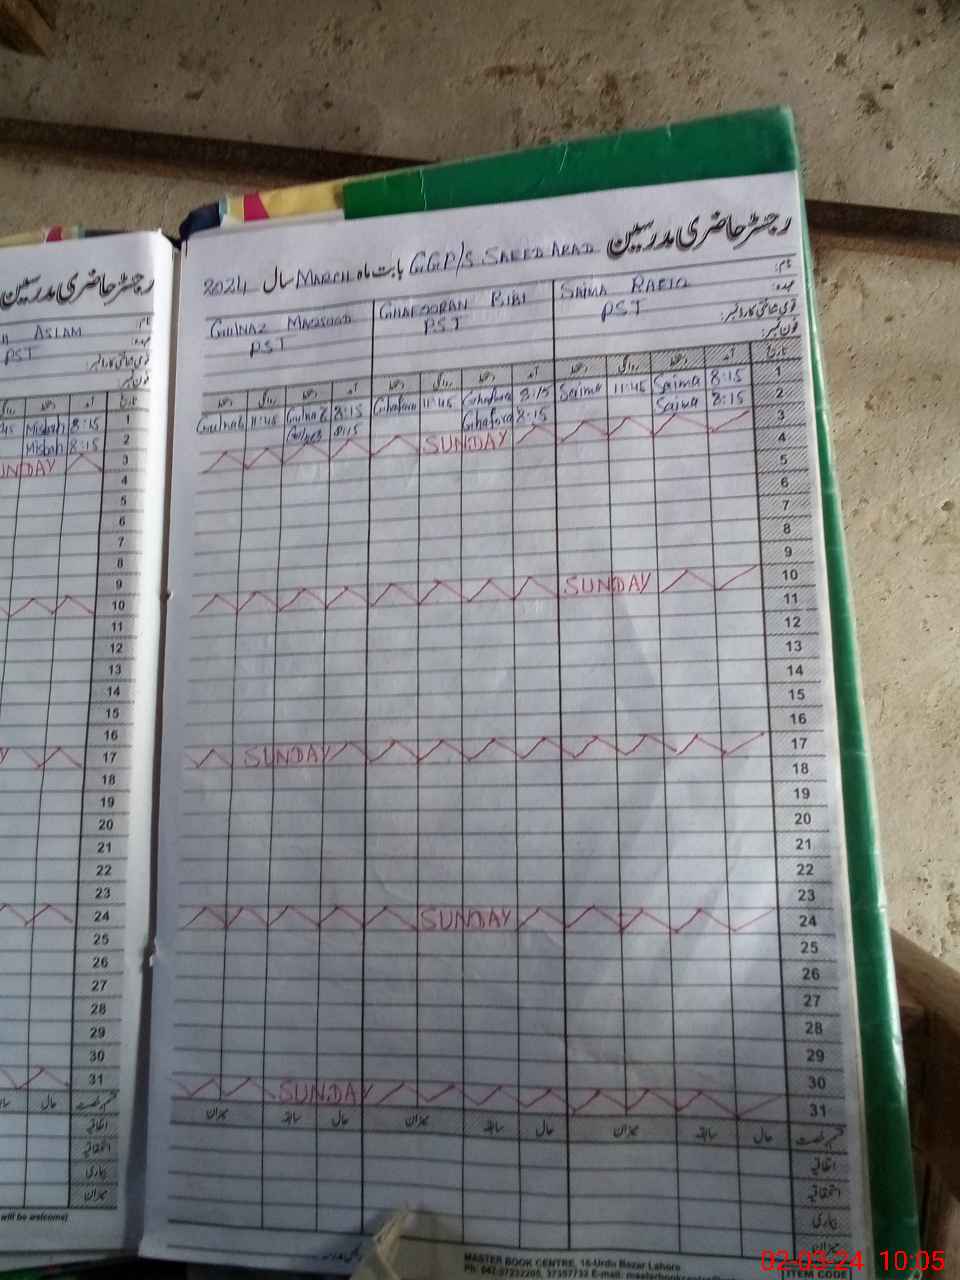 رجسٹر حاضری مدرسین
G.G.P/S SAEED ABAD بابت ماہ MARCH سال 2024
نام:
عہدہ:
قومی شناختی کارڈ نمبر:
فون نمبر:
SAIMA RAFIQ
PST
GHAFOORAN BIBI
PST
GULNAZ MAQSOOD
PST
تاریخ آمد دستخط روانگی دستخط آمد دستخط روانگی دستخط آمد دستخط روانگی دستخط
1 8:15 Saima 11:45 Saima 8:15 Ghafora 11:45 Ghafora 8:15 Gulnaz 11:45 Gulnaz
2 8:15 Saima 8:15 Ghafora 8:15 Gulnaz
3 SUNDAY
4
5
6
7
8
9
10 SUNDAY
11
12
13
14
15
16
17 SUNDAY
18
19
20
21
22
23
24 SUNDAY
25
26
27
28
29
30
31 SUNDAY
حال سابقہ میزان حال سابقہ میزان حال سابقہ میزان
اتفاقیہ
استحقاقیہ
بیماری
میزان
MASTER BOOK CENTRE, 16-Urdu Bazar Lahore
ITEM CODE
رجسٹر حاضری مدرسین
نام:
عہدہ:
قومی شناختی کارڈ نمبر:
فون نمبر:
ASLAM
PST
تاریخ آمد دستخط
1 8:15 Misbah
2 8:15 Misbah
3
4
5
6
7
8
9
10
11
12
13
14
15
16
17
18
19
20
21
22
23
24
25
26
27
28
29
30
31
حال
اتفاقیہ
استحقاقیہ
بیماری
میزان
will be welcome)
02-03-24 10:05